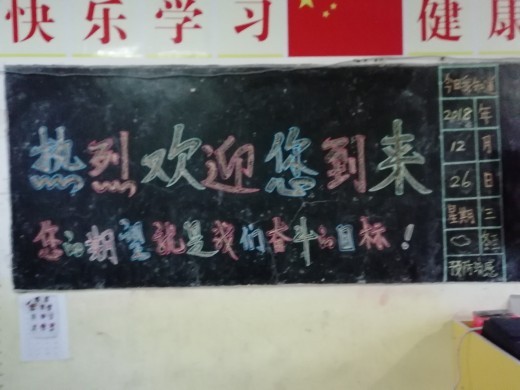 快乐学习
健康
热烈欢迎您到来
您的期望就是我们奋斗的目标！
2018年
12月
26日
星期三